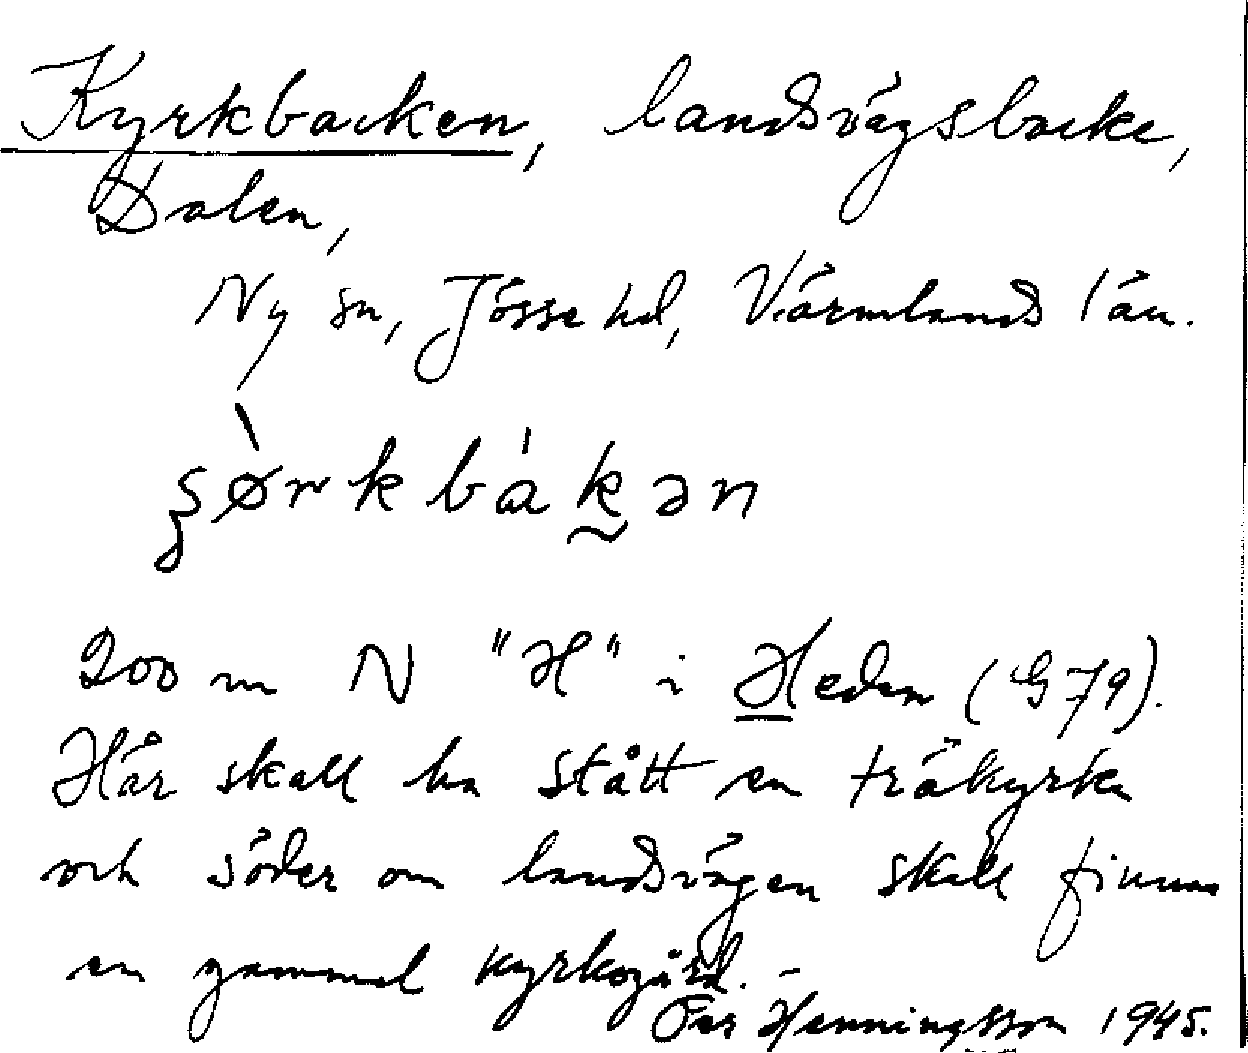 Kyrkbacken, landsvägsbacke,
Dalen,
Ny sn, Jösse hd, Värmlands län.
200 m N "H" i Heden (G 79).
Här skall ha stått en träkyrka
och söder om landsvägen skall finnas
en gammal kyrkogård. –
Per Henningsson 1945.